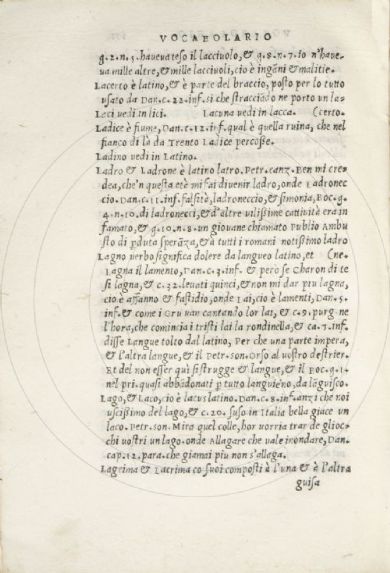 VOCABOLARIO
g. 2. n. 5. haveva teso il lacciuolo, & g. 8. n. 7. io n'have-
ua mille altre, & mille lacciuoli, cio è ingãni & malitie.
Lacerto è latino, & è parte del braccio, posto per lo tutto
usato da Dan. c. 22. inf. si che stracciãdo ne porto un la-
Leci vedi in lici. Lacuna vedi in lacca. (certo.
Ladice è fiume, Dan. c. 12. inf. qual è quella ruina, che nel
fianco di là da Trento Ladice percosse.
Ladino vedi in Latino.
Ladro & Ladrone è latino latro. Petr. canz. Ben mi cre-
dea, che'n questa età mi fai divenir ladro, onde Ladronec
cio. Dan. c. 11. inf. falsità, ladroneccio, & simonia, Boc. g.
4. n. 10. di ladronecci, & d'altre vilissime cattività era in
famato, & g. 10. n. 8. un giovane chiamato Publio Ambu
sto di pduta sperãza, & à tutti i romani notissimo ladro
Lagno verbo significa dolere da langueo latino, et (ne
Lagna il lamento, Dan. c. 3. inf. & però se Charon di te
si lagna, & c. 32. levati quinci, & non mi dar piu lagna,
cio è affanno & fastidio, onde Lai, cio è lamenti, Dan. 5.
inf. & come i Gru van cantando lor lai, & c. 9. purg. ne
l'hora, che comincia i tristi lai la rondinella, & ca. 7. inf.
disse Langue tolto dal latino, Per che una parte impera,
& l'altra langue, & il Petr. son. Orso al vostro destrier.
Et del non esser qui si strugge & langue, & il Boc. g. 1.
nel pri. quasi abbãdonati p tutto languieno, da lãguisco.
Lago, & Laco, cio è lacus latino. Dan. c. 8. inf. anzi che noi
uscissimo del lago, & c. 20. suso in Italia bella giace un
laco. Petr. son. Mira quel colle, hor vorria trar de glioc-
chi vostri un lago. onde Allagare che vale inondare, Dan.
cap. 12. para. che giamai piu non s'allaga.
Lagrima & Lacrima co suoi composti è l'una & è l'altra
guisa